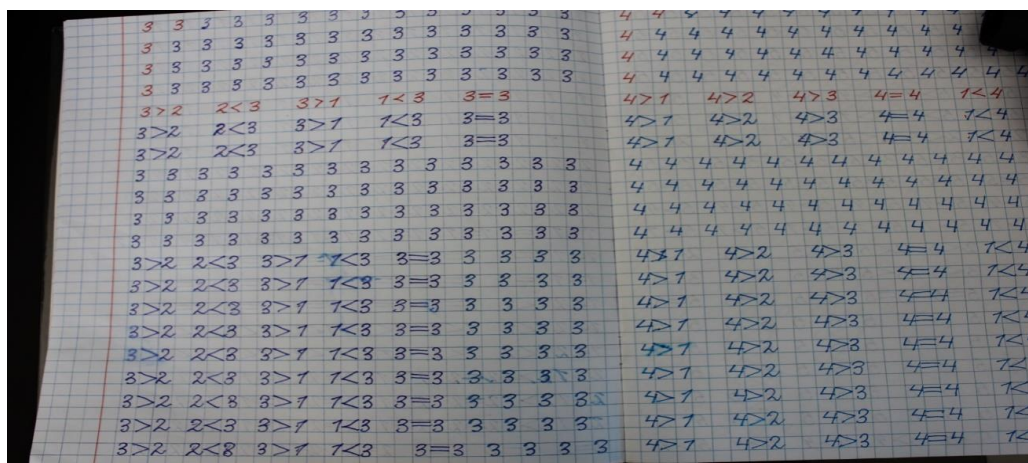 3 3 3 3 3 3 3 3 3 3 3 3 3 3
3 3 3 3 3 3 3 3 3 3 3 3 3 3
3 3 3 3 3 3 3 3 3 3 3 3 3 3
3 3 3 3 3 3 3 3 3 3 3 3 3 3
3>2 2<3 3>1 1<3 3=3
3>2 2<3 3>1 1<3 3=3
3>2 2<3 3>1 1<3 3=3
3 3 3 3 3 3 3 3 3 3 3 3 3 3
3 3 3 3 3 3 3 3 3 3 3 3 3 3
3 3 3 3 3 3 3 3 3 3 3 3 3 3
3 3 3 3 3 3 3 3 3 3 3 3 3 3
3>2 2<3 3>1 1<3 3=3 3 3 3 3
3>2 2<3 3>1 1<3 3=3 3 3 3 3
3>2 2<3 3>1 1<3 3=3 3 3 3 3
3>2 2<3 3>1 1<3 3=3 3 3 3 3
3>2 2<3 3>1 1<3 3=3 3 3 3 3
3>2 2<3 3>1 1<3 3=3 3 3 3 3
3>2 2<3 3>1 1<3 3=3 3 3 3 3
3>2 2<3 3>1 1<3 3=3 3 3 3 3
3>2 2<3 3>1 1<3 3=3 3 3 3 3
4 4 4 4 4 4 4 4 4 4 4
4 4 4 4 4 4 4 4 4 4 4
4 4 4 4 4 4 4 4 4 4 4 4 4
4 4 4 4 4 4 4 4 4 4 4 4 4
4>1 4>2 4>3 4=4 1<4
4>1 4>2 4>3 4=4 1<4
4>1 4>2 4>3 4=4 1<4
4 4 4 4 4 4 4 4 4 4 4 4
4 4 4 4 4 4 4 4 4 4 4 4
4 4 4 4 4 4 4 4 4 4 4 4
4 4 4 4 4 4 4 4 4 4 4 4
4>1 4>2 4>3 4=4 1<4
4>1 4>2 4>3 4=4 1<4
4>1 4>2 4>3 4=4 1<4
4>1 4>2 4>3 4=4 1<
4>1 4>2 4>3 4=4 1<
4>1 4>2 4>3 4=4 1<
4>1 4>2 4>3 4=4 1<
4>1 4>2 4>3 4=4 1<
4>1 4>2 4>3 4=4 1<